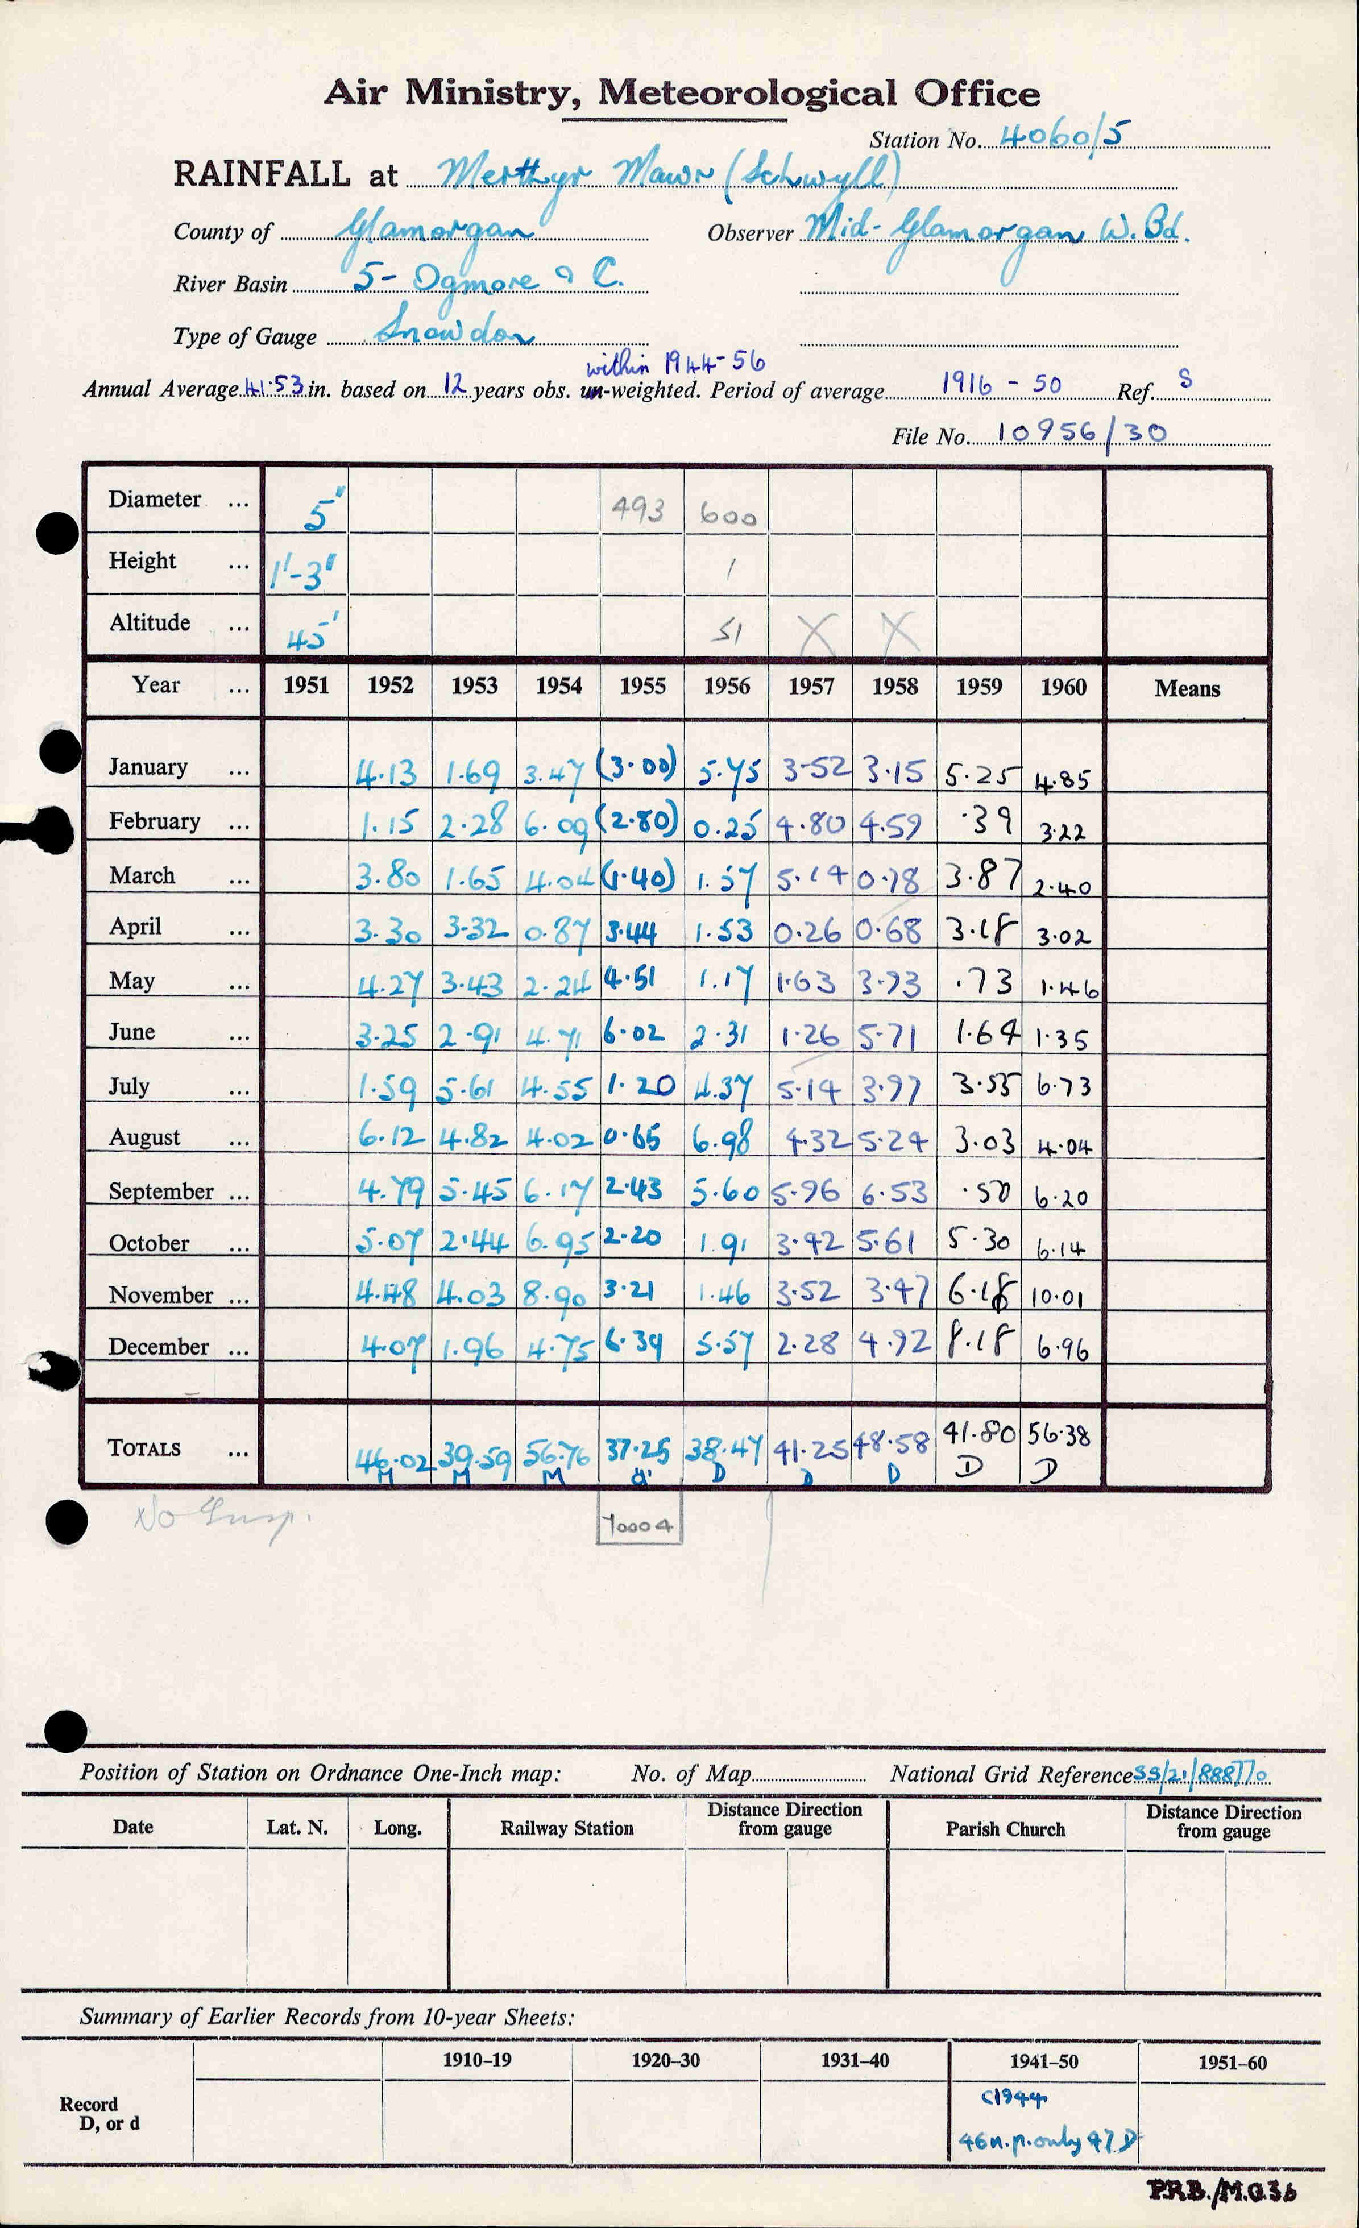 Air Ministry, Meteorological Office
Station No. 4060/5
RAINFALL at Merthyr Mawr (Schwyll)
County of Glamorgan Observer Mid-Glamorgan W. Bd.
River Basin 5- Ogmore & C.
Type of Gauge Snowdon
within 1944-56
Annual Average 41.53 in. based on 12 years obs. un-weighted. Period of average 1916 - 50 Ref. S
File No. 10956/30
Diameter ... 5" 493 600
Height ... 1'-3" 1
Altitude ... 45' 51 X X
Year ... 1951 1952 1953 1954 1955 1956 1957 1958 1959 1960 Means
January ... 4.13 1.69 3.47 (3.00) 5.75 3.52 3.15 5.25 4.85
February ... 1.15 2.28 6.09 (2.80) 0.25 4.80 4.59 .39 3.22
March ... 3.80 1.65 4.04 (1.40) 1.57 5.14 0.78 3.87 2.40
April ... 3.30 3.32 0.87 3.44 1.53 0.26 0.68 3.18 3.02
May ... 4.27 3.43 2.24 4.51 1.17 1.63 3.93 .73 1.46
June ... 3.25 2.91 4.71 6.02 2.31 1.26 5.71 1.64 1.35
July ... 1.59 5.61 4.55 1.20 4.37 5.14 3.97 3.55 6.73
August ... 6.12 4.82 4.02 0.65 6.98 4.32 5.24 3.03 4.04
September ... 4.79 5.45 6.17 2.43 5.60 5.96 6.53 .50 6.20
October ... 5.07 2.44 6.95 2.20 1.91 3.42 5.61 5.30 6.14
November ... 4.48 4.03 8.90 3.21 1.46 3.52 3.47 6.18 10.01
December ... 4.07 1.96 4.75 6.39 5.57 2.28 4.92 8.18 6.96
TOTALS ... 46.02 39.59 56.76 37.25 38.47 41.25 48.58 41.80 56.38
M M M d' D D D D D
No Insp. 70004
Position of Station on Ordnance One-Inch map: No. of Map National Grid Reference SS/21/888770
Date Lat. N. Long. Railway Station Distance Direction from gauge Parish Church Distance Direction from gauge
Summary of Earlier Records from 10-year Sheets:
1910–19 1920–30 1931–40 1941–50 1951–60
Record D, or d
c1944
46 n.p. only 47 D
P.R.B./M.O.36